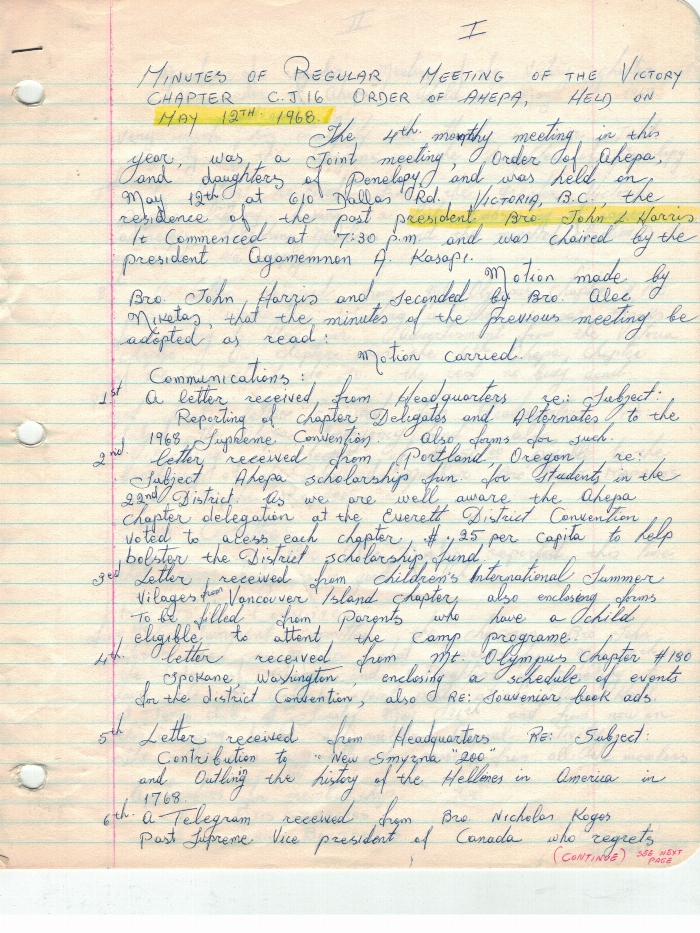 I
MINUTES OF REGULAR MEETING OF THE VICTORY
CHAPTER C.J.16 ORDER OF AHEPA, HELD ON
MAY 12TH 1968.
The 4th. monthy meeting in this
year, was a Joint meeting, Order of Ahepa,
and daughters of Penelopy and was held on
May 12th at 610 Dallas Rd. VICTORIA, B.C., the
residence of the past president Bro. John L Harris
It Commenced at 7:30 p.m. and was chaired by the
president Agamemnon A. Kasapi.
Motion made by
Bro. John Harris and seconded by Bro. Alec
Niketas, that the minutes of the previous meeting be
adopted as read:
Motion carried.
Communications:
1st A letter received from Headquarters re: Subject:
Reporting of chapter Delegates and Alternates to the
1968 Supreme Convention. Also forms for such.
2nd. letter received from Portland, Oregon re:
Subject Ahepa scholarship fun. for Students in the
22nd District. As we are well aware the Ahepa
chapter delegation at the Everett District Convention
voted to acess each chapter, $.25 per Capita to help
bolster the District scholarship fund
3rd Letter received from children's International Summer
Vilages from Vancouver Island chapter, also enclosing forms
To be filled from Parents who have a child
eligible to attent the Camp programe.
4th. letter received from Mt. Olympus Chapter #180
Spokane, Washington, enclosing a schedule of events
for the district Convention, also RE: Souveniar book ads.
5th Letter received from Headquarters RE: Subject:
Contribution to "New Smyrna "200"
and Outling the history of the Hellenes in America in
1768.
6th. A Telegram received from Bro. Nicholas Kogos
Past Supreme Vice president of Canada who regrets
(CONTINUE) SEE NEXT
PAGE